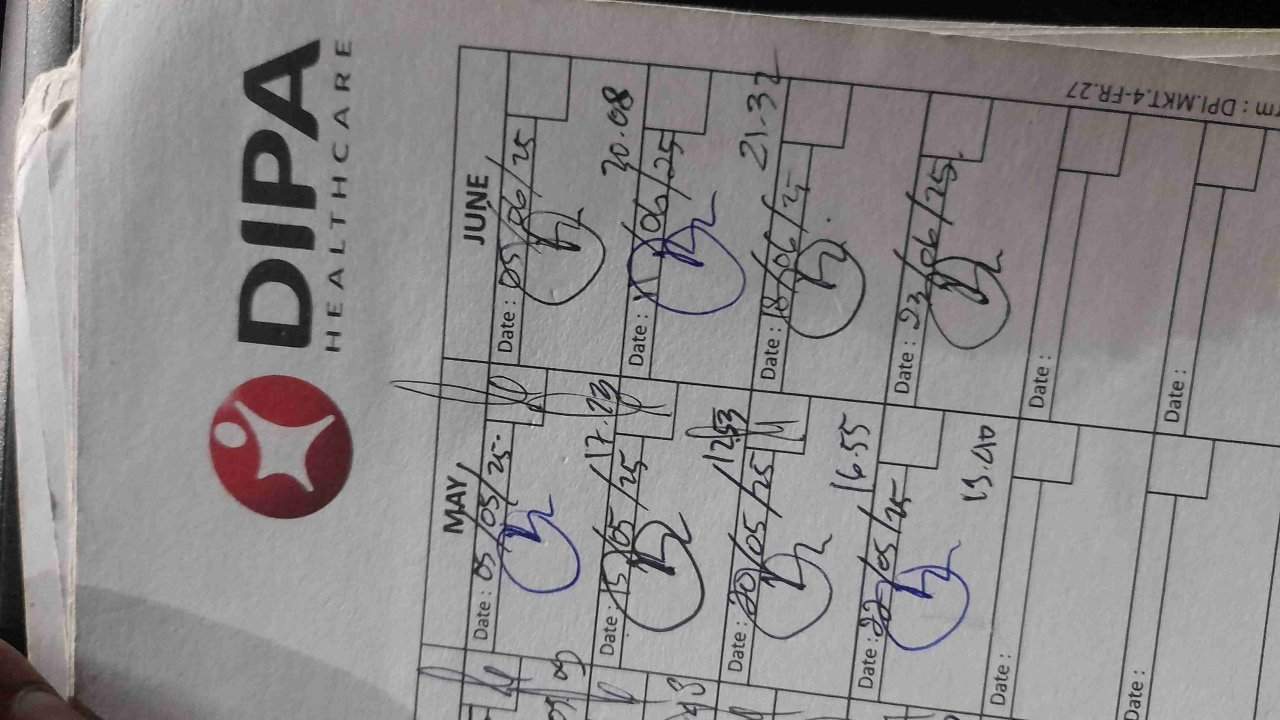 DIPA
HEALTHCARE
MAY
Date : 05/05/25.
Date : 15/05/25
17.23
Date : 20/05/25
Date : 22/05/25
16.55
Date :
Date :
JUNE
Date : 05/06/25
Date : 11/06/25
20.08
Date : 18/06/25
21.32
Date : 23/06/25.
Date :
Date :
rm : DPI.MKT.4-FR.27